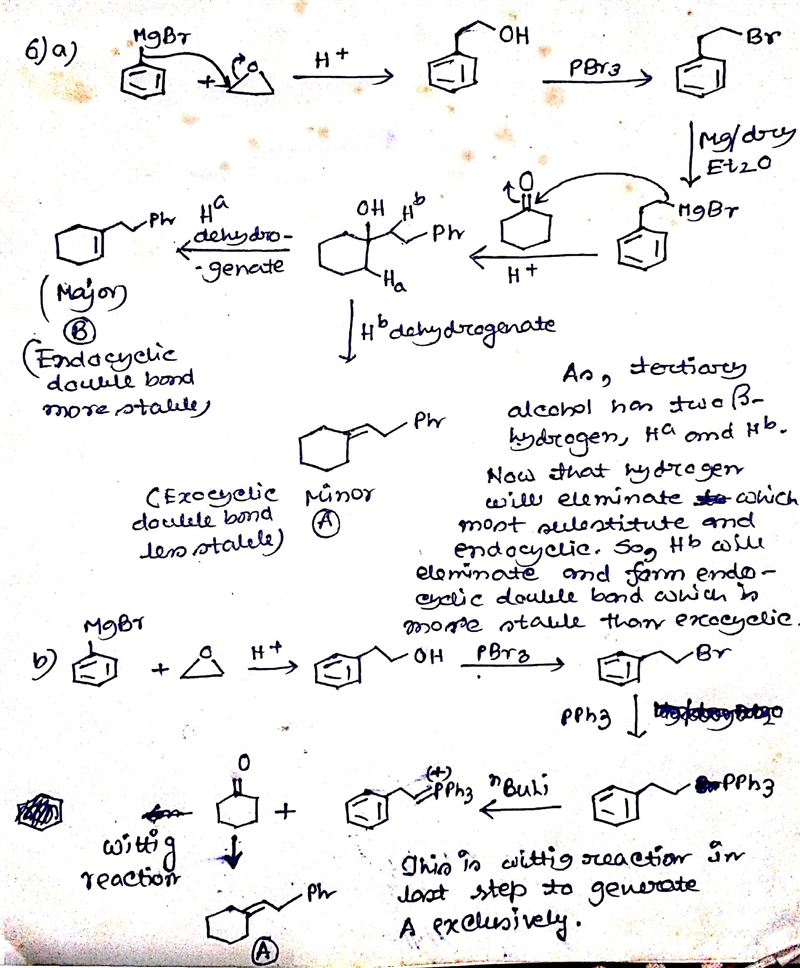 6) a)
MgBr
O
+
H+
OH
PBr3
Br
Mg/dry
Et2O
MgBr
O
H+
OH
Hb
Ph
Ha
Ha
dehydro-
-genate
Ph
(Major)
B
(Endocyclic
double bond
more stable)
Hb dehydrogenate
Ph
(Exocyclic
double bond
less stable)
Minor
A
As, tertiary
alcohol has two β-
hydrogen, Ha and Hb.
Now that hydrogen
will eleminate which
most substitute and
endocyclic. So, Hb will
eleminate and form endo-
cyclic double bond which is
more stable than exocyclic.
b)
MgBr
+
O
H+
OH
PBr3
Br
PPh3
PPh3
nBuLi
(+)
PPh3
+
O
wittig
reaction
Ph
A
This is wittig reaction in
last step to generate
A exclusively.